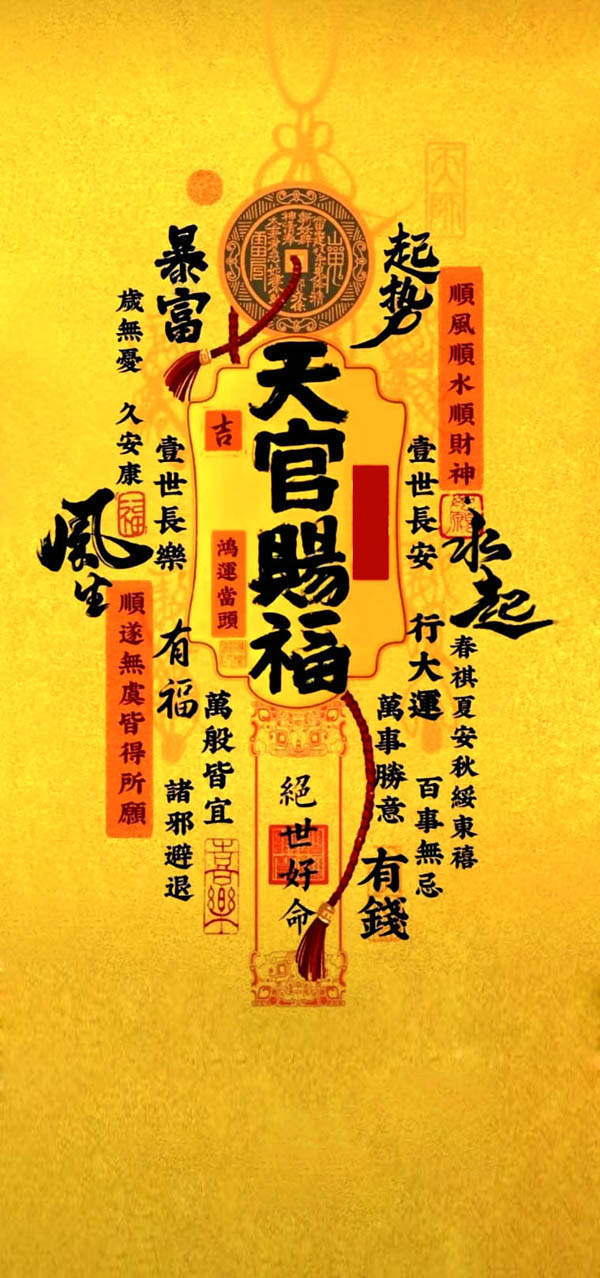 起势
暴富
順風順水順財神
歲無憂 久安康
天官賜福
吉
鴻運當頭
壹世長安
壹世長樂
風生
水起
福
順遂無虞皆得所願
有福
行大運
春祺夏安秋綏東禧
萬般皆宜
諸邪避退
萬事勝意
百事無忌
絕世好命
有錢